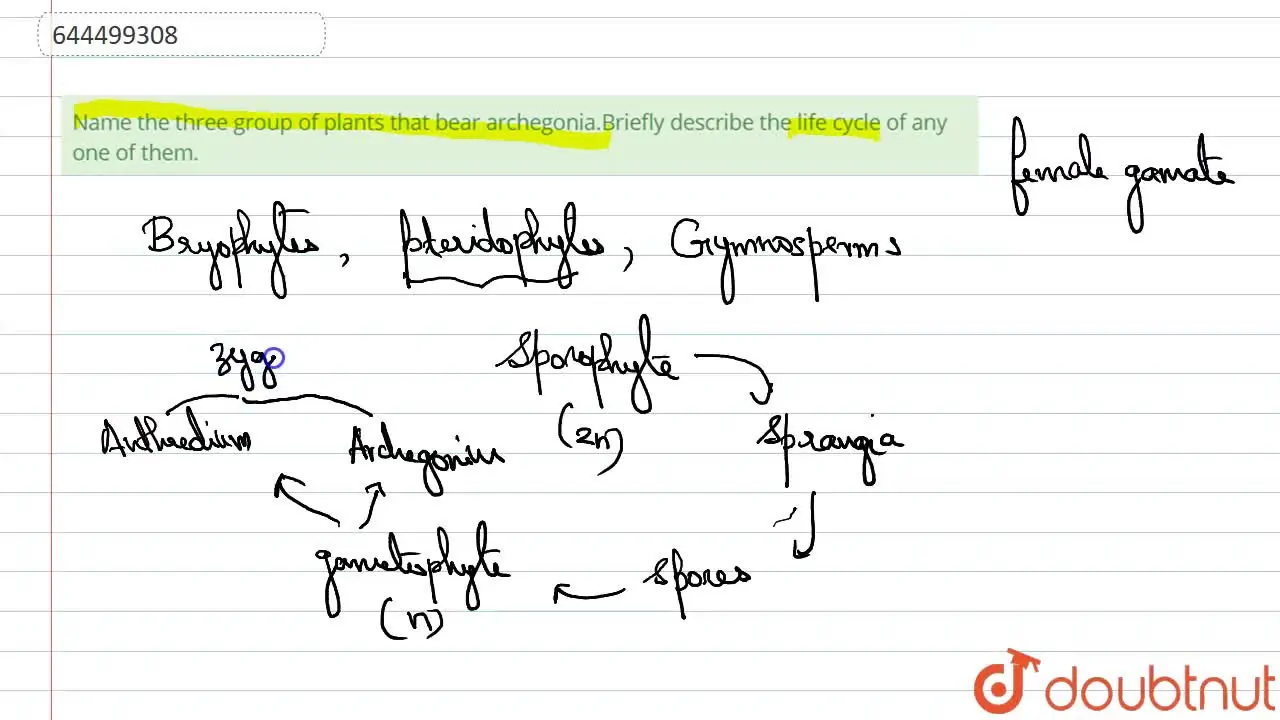 644499308
Name the three group of plants that bear archegonia.Briefly describe the life cycle of any
one of them.
female gamate
Bryophytes, pteridophytes, Gymnosperms
zyg
Sporophyte
(2n)
Anthredium
Archegonium
Sprangia
gametophyte
(n)
spores
doubtnut